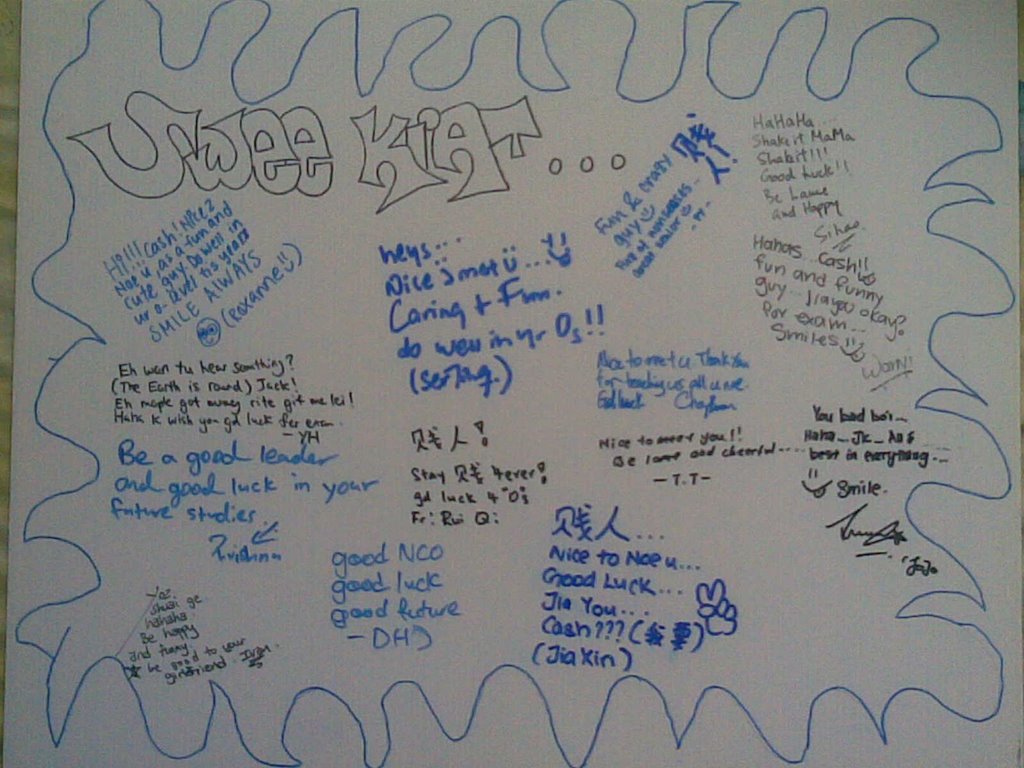 Swee Kiat...
Hi!!! Cash! Nice 2
Noe u as a fun and
cute guy. Do well in
ur o-level tis year
SMILE ALWAYS
(Roxanne!!)
heys...
Nice 2 met u...
Caring & Fun.
do well in yr Os!!
Fun & crazy
guy
贱人!
HaHaHa...
Shake it MaMa
Shake it!!!
Good Luck!!
Be Lame
and Happy
Sihao
Hahas.. Cash!!
fun and funny
guy... Jiayou okay?
For exam...
Smiles
Eh wan tu hear something?
(The Earth is round) Jack!
Eh maple got money rite gif me lei!
Haha k wish you gd luck for exam.
- YH
Nice to meet u. Thank You
for teaching us all u noe.
Good luck
Be a good leader
and good luck in your
future studies.
贱人!
Stay 贱 4ever!
gd luck 4 "O"s
Fr: Rui Qi
Nice to meet you!!
Be lame and cheerful....
- T.T -
You bad boi...
Haha... JK...
best in everything...
Smile.
"JoJo
good NCO
good luck
good future
贱人...
Nice to Noe u...
Good Luck...
Jia You...
Cash??? (我要)
(JiaXin)
Yoz.
Shuai ge
hahaha.
Be happy
and funny
be good to your
girlfriend. Ivan